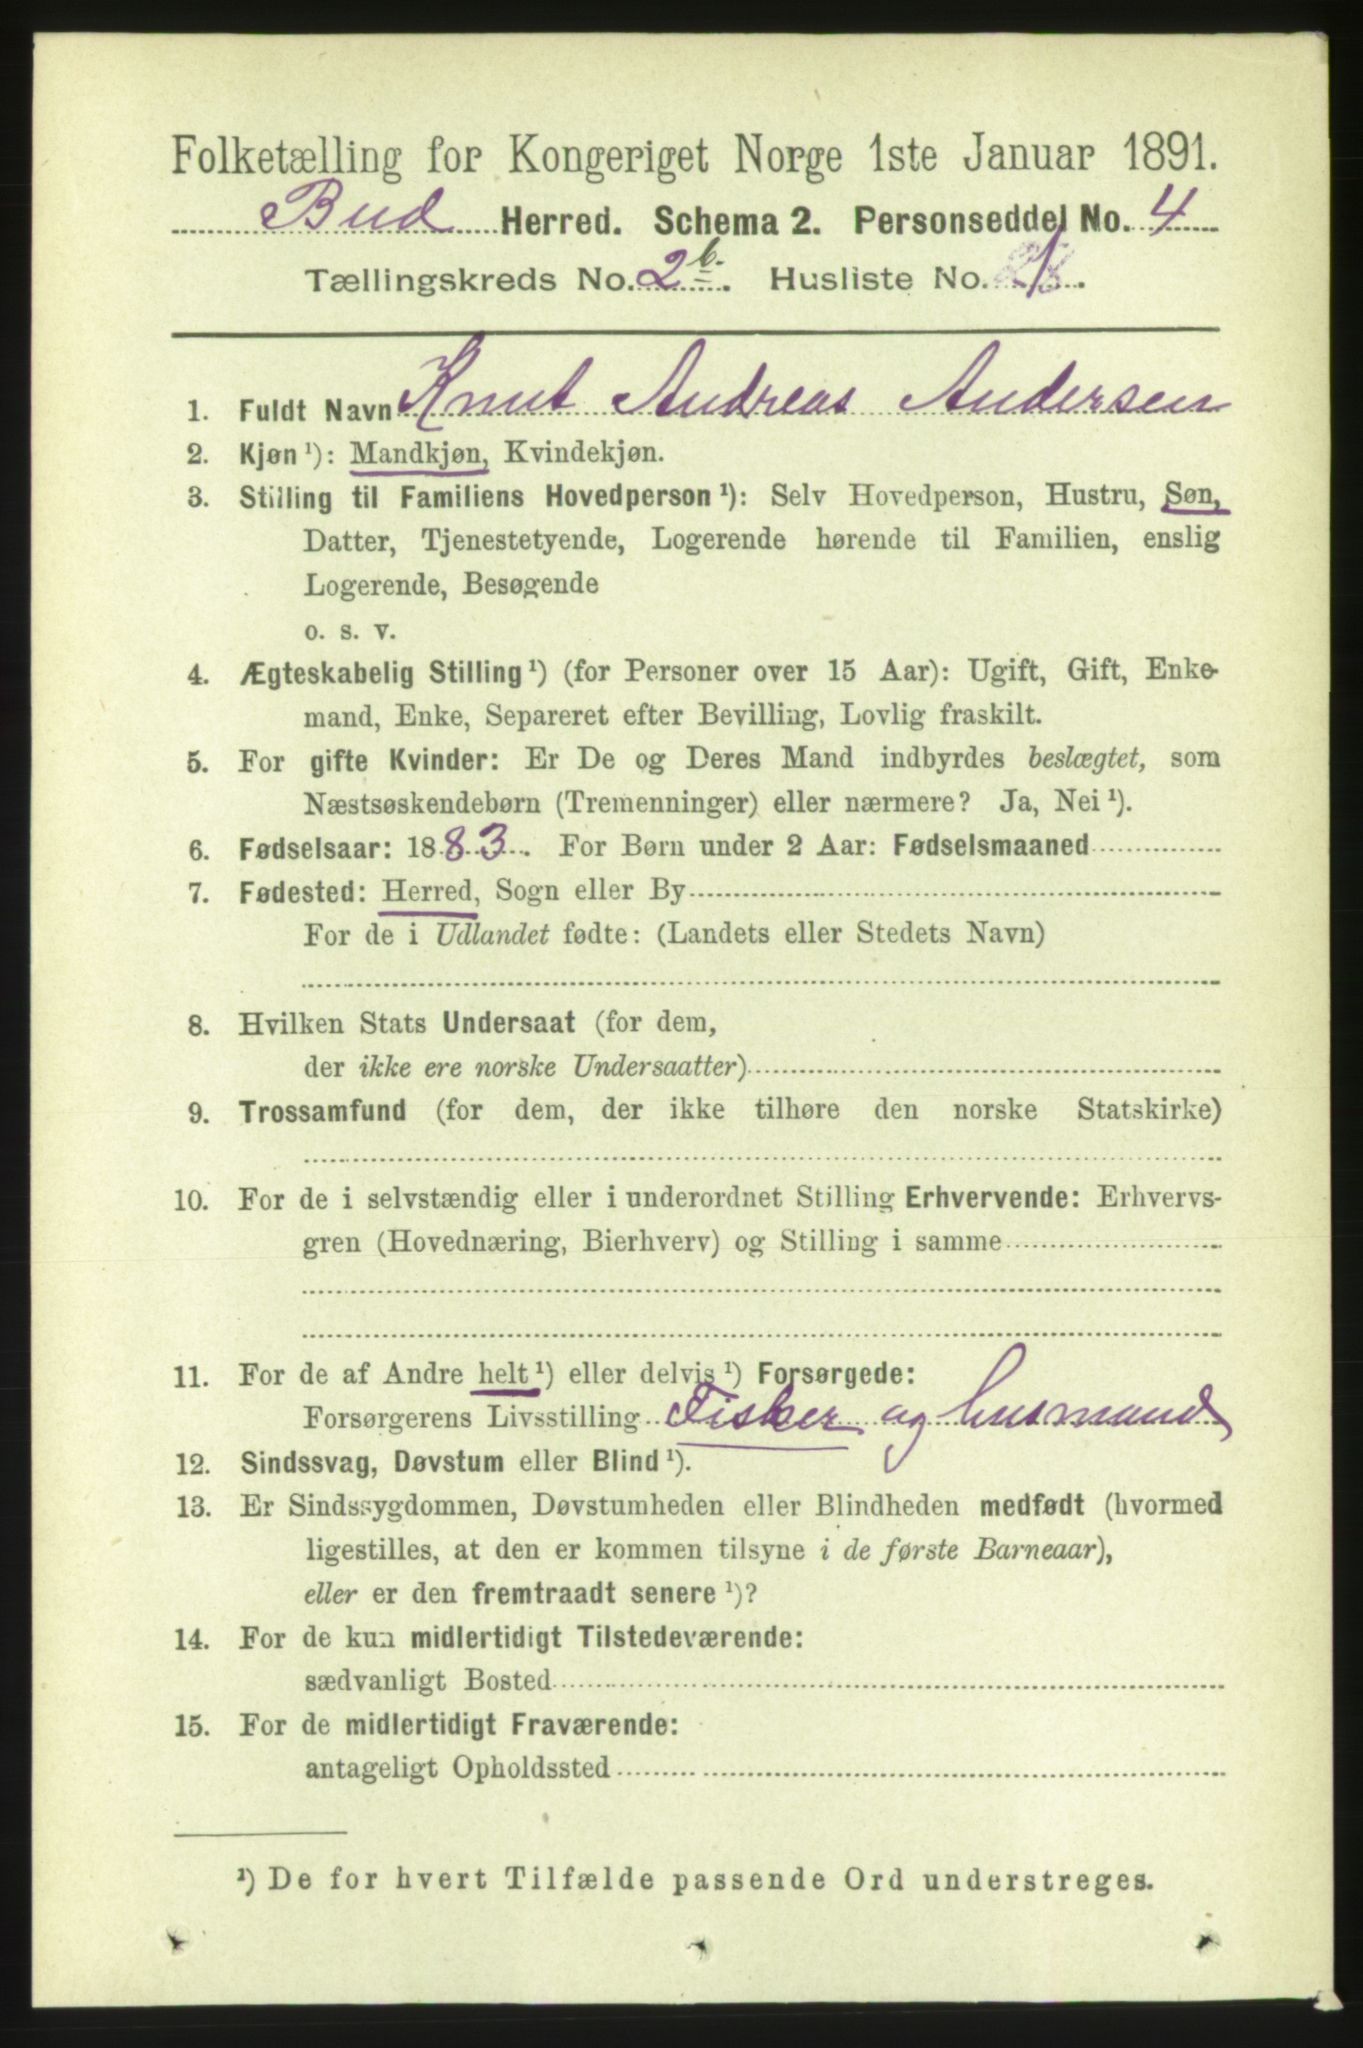 Folketælling for Kongeriget Norge 1ste Januar 1891.
Bud Herred. Schema 2. Personseddel No. 4
Tællingskreds No. 2 b. Husliste No.
1. Fuldt Navn Knut Andreas Andersen
2. Kjøn ¹): Mandkjøn, Kvindekjøn.
3. Stilling til Familiens Hovedperson ¹): Selv Hovedperson, Hustru, Søn,
Datter, Tjenestetyende, Logerende hørende til Familien, enslig
Logerende, Besøgende
o. s. v.
4. Ægteskabelig Stilling ¹) (for Personer over 15 Aar): Ugift, Gift, Enke-
mand, Enke, Separeret efter Bevilling, Lovlig fraskilt.
5. For gifte Kvinder: Er De og Deres Mand indbyrdes beslægtet, som
Næstsøskendebørn (Tremenninger) eller nærmere? Ja, Nei ¹).
6. Fødselsaar: 1883. For Børn under 2 Aar: Fødselsmaaned
7. Fødested: Herred, Sogn eller By
For de i Udlandet fødte: (Landets eller Stedets Navn)
8. Hvilken Stats Undersaat (for dem,
der ikke ere norske Undersaatter)
9. Trossamfund (for dem, der ikke tilhøre den norske Statskirke)
10. For de i selvstændig eller i underordnet Stilling Erhvervende: Erhvervs-
gren (Hovednæring, Bierhverv) og Stilling i samme
11. For de af Andre helt ¹) eller delvis ¹) Forsørgede:
Forsørgerens Livsstilling Fisker og husmand
12. Sindssvag, Døvstum eller Blind ¹).
13. Er Sindssygdommen, Døvstumheden eller Blindheden medfødt (hvormed
ligestilles, at den er kommen tilsyne i de første Barneaar),
eller er den fremtraadt senere ¹)?
14. For de kun midlertidigt Tilstedeværende:
sædvanligt Bosted
15. For de midlertidigt Fraværende:
antageligt Opholdssted
¹) De for hvert Tilfælde passende Ord understreges.